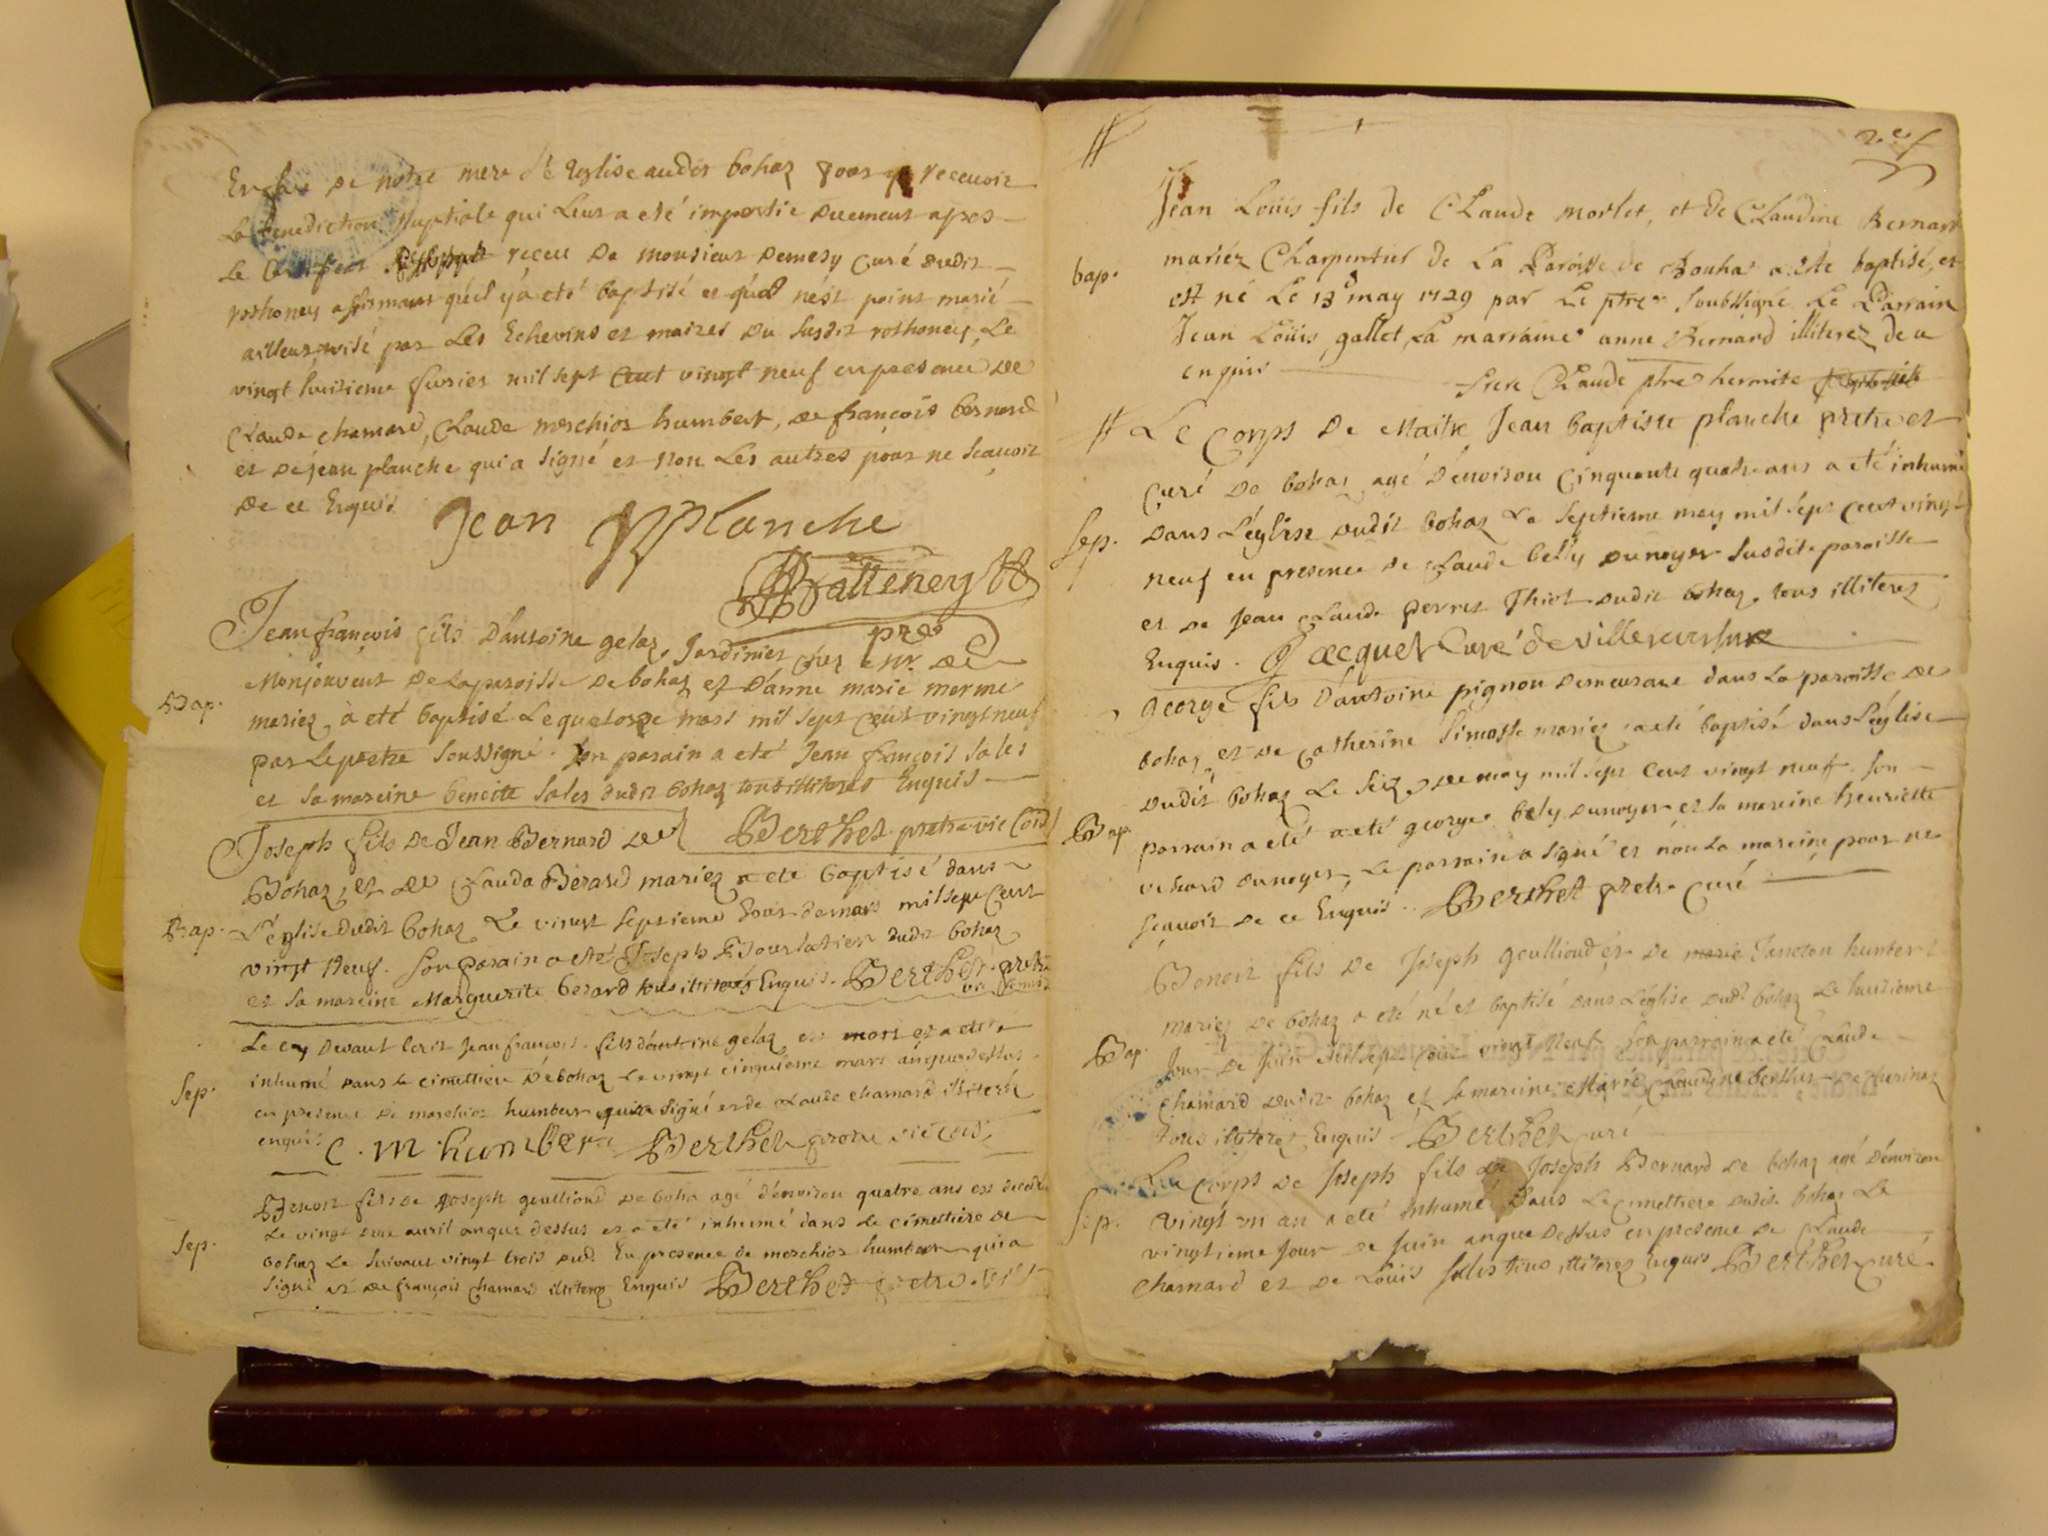 de notre mere Eglise audit bohaz pour recevoir
La benediction Nuptiale qui Leur a eté impartie duement apres
Le receu de Monsieur Demesy Curé dudit
rothoney affirmant qu'il y a eté baptisé et qu'il n'est point marié
ailleurs visé par Les Echevins et maires du susdit rothoney Le
vingt huitieme fuvrier mil sept cent vingt neuf en presence de
Claude chamard, Claude merchior humbert, de françois bernard
et de jean planche qui a signé et non Les autres pour ne scauoir
de ce Enquis
Jean Planche
Jean françois fils D'antoine gelaz, Jardinier chez mr. de
Monjouvent De la paroisse De bohaz et D'anne marie merme
Bap.
mariez a eté baptisé Le quatorze mars mil sept cent vingt neuf
par Le pretre soussigné. Son parain a eté Jean françois sales
et sa mareine benoite sales dudit bohaz tous illiteres Enquis
Berthet pretre vic
Joseph fils de Jean Bernard de
Bohaz, et de Clauda Berard mariez a eté baptisé dans
Bap.
L'eglise dudit bohaz Le vingt septieme Jour de mars mil sept cent
vingt Neuf. son parain a eté Joseph dudit bohaz
et sa mareine Marguerite berard tous illiterés Enquis. Berthet pretre
Le cy devant Ecrit Jean francois fils d'antoine gelaz est mort et a eté
Sep.
inhumé dans le cimettiere de bohaz Le vingt cinquieme mars an que dessus
en presence de merchior humbert qui a signé et de Claude chamard illiteré
enquis C. m humbert Berthet pretre
Benoit fils de Joseph goullioud de boha agé d'environ quatre ans est decedé
Sep.
Le vingt avril an que dessus et a eté inhumé dans Le cimettiere de
bohaz Le suivant vingt trois dud. En presence de merchior humbert qui a
signé et de françois chamard illiterez Enquis Berthet pretre
Jean Loüis fils de CLaude morlet, et de CLaudine Bernard
bap.
mariez Charpentier de La Paroisse de Bouha a été baptisé, et
est né Le 13 may 1729 par Le ptre soubsigné Le Parrain
Jean Loüis gallet, La marraine anne Bernard illiterez de a
enquis
frere CLaude ptre hermite
Le corps De Maitre Jean baptiste planche pretre et
Curé de bohaz agé d'environ cinquante quatre ans a eté inhumé
Sep.
Dans L'église dudit bohaz Le septieme may mil sept cent vingt
neuf en presence de Claude belly dunoyer susdite paroisse
et de Jean Claude perret Thiol dudit bohaz tous illiterez
Enquis. Jacquet Curé de villereversure
George fils D'antoine pignon demeurant dans La paroisse de
bohaz et de Catherine mariez a eté baptisé dans L'église
dudit bohaz Le seize de may mil sept cent vingt neuf. son
Bap.
parrain a eté a eté george bely dunoyer et sa mareine henriette
vuhard dunoyer, Le parrain a signé et non La mareine pour ne
sçauoir de ce Enquis. Berthet pretre Curé
Benoit fils de Joseph goullioud et de marie Jancton humbert
mariez de bohaz a eté né et baptisé dans L'église dudt bohaz Le huitieme
Bap.
Jour de Juin mil sept cent vingt Neuf son parrain a eté Claude
chamard dudit bohaz et sa mareine Marie Claudine berthet
tous illiterez Enquis Berthet curé
Le corps de Joseph fils de Joseph Bernard de bohaz agé d'environ
Sep.
vingt un an a eté Inhumé Dans Le cimettiere dudit bohaz Le
vingtieme Jour de Juin an que Dessus en presence de Claude
chamard et de Loüis sales tous illiterez enquis Berthet curé.